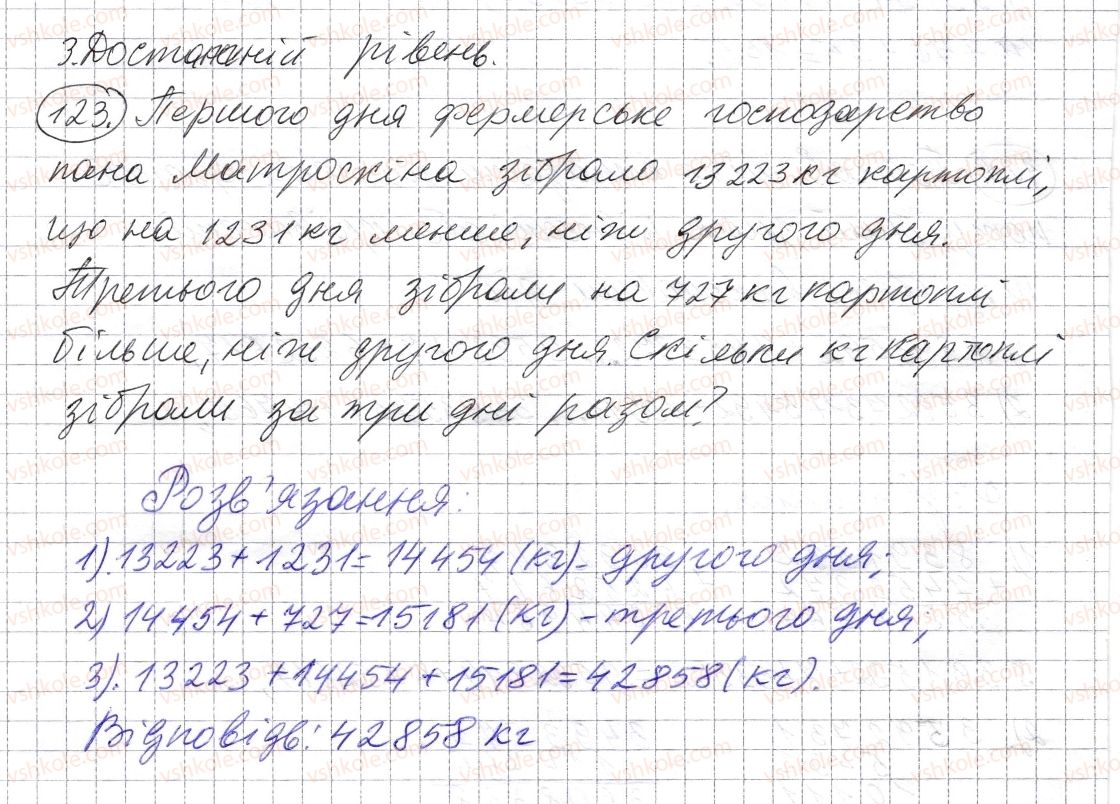 3. Достатній рівень.
123. Першого дня фермерське господарство
пана Матроскіна зібрало 13223 кг картоплі,
що на 1231 кг менше, ніж другого дня.
Третього дня зібрали на 727 кг картоплі
більше, ніж другого дня. Скільки кг картоплі
зібрали за три дні разом?
Розв'язання:
1). 13223 + 1231 = 14454 (кг) - другого дня;
2) 14454 + 727 = 15181 (кг) - третього дня;
3). 13223 + 14454 + 15181 = 42858 (кг).
Відповідь: 42858 кг